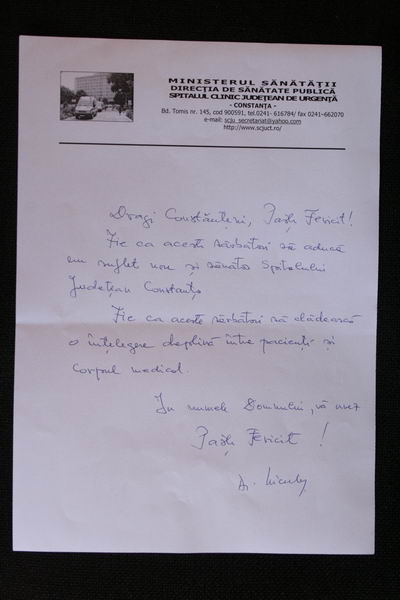 MINISTERUL SĂNĂTĂȚII
DIRECȚIA DE SĂNĂTATE PUBLICĂ
SPITALUL CLINIC JUDEȚEAN DE URGENȚĂ
- CONSTANȚA -
Bd. Tomis nr. 145, cod 900591, tel.0241- 616784/ fax 0241-662070
e-mail: scju_secretariat@yahoo.com
http://www.scjuct.ro/
Dragi Constănțeni, Paște Fericit!
Fie ca aceste sărbători să aducă
un suflet nou și sănătos Spitalului
Județean Constanța
Fie ca aceste sărbători să clădească
o înțelegere deplină între pacienți și
Corpul medical.
În numele Domnului, vă urez
Paște Fericit!